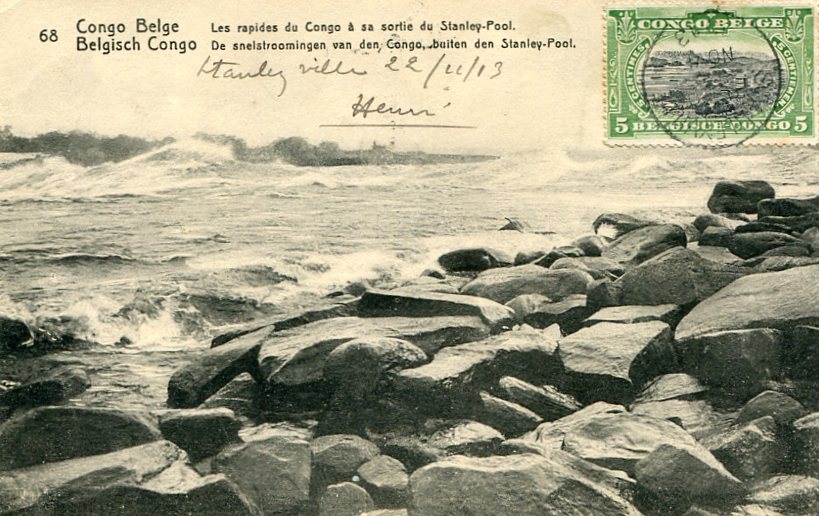 68
Congo Belge
Belgisch Congo
Les rapides du Congo à sa sortie du Stanley-Pool.
De snelstroomingen van den Congo, buiten den Stanley-Pool.
Stanleyville 22/11/13
Henri
CONGO BELGE
5 CENTIMES
5 CENTIEMEN
5 BELGISCH-CONGO 5